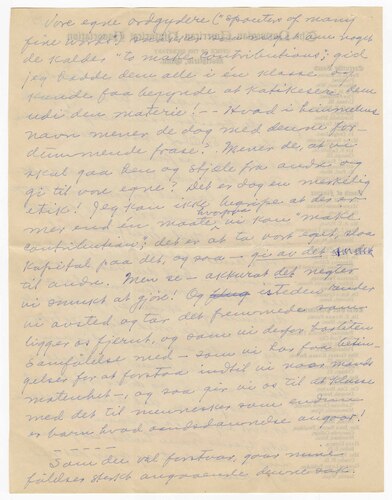 Vore egne ordgydere ("Spouters of many
fine words") har
de kalder "to make contributions"; gid
jeg havde dem alle i en klasse og
kunde faa begynde at katekisere dem
udi den materie! -- Hvad i himmelens
navn mener de dog med denne for-
dummende frase? Mener de, at vi
skal gaa hen og stjele fra andre og
gi til vore egne? Det er dog en merkelig
etik! Jeg kan ikke begripe at der er
mer end en maate hvorpaa vi kan "make
contribution"; det er at ta vort eget, slaa
kapital paa det, og saa - gi av det
til andre. Men se - akkurat det negter
vi smukt at gjøre! Og isteden render
vi avsted og tar det fremmede som
ligger os fjernt, og som vi derfor
samfølelse med - som vi har faa betin-
gelser for at forstaa indtil vi naar
- og saa gir vi os til at
med det til mennesker som endnu
er barn hvad aandsdannelse angaar!
Som du vel forstaar, gaar mine
følelser sterkt angaaende denne sak.